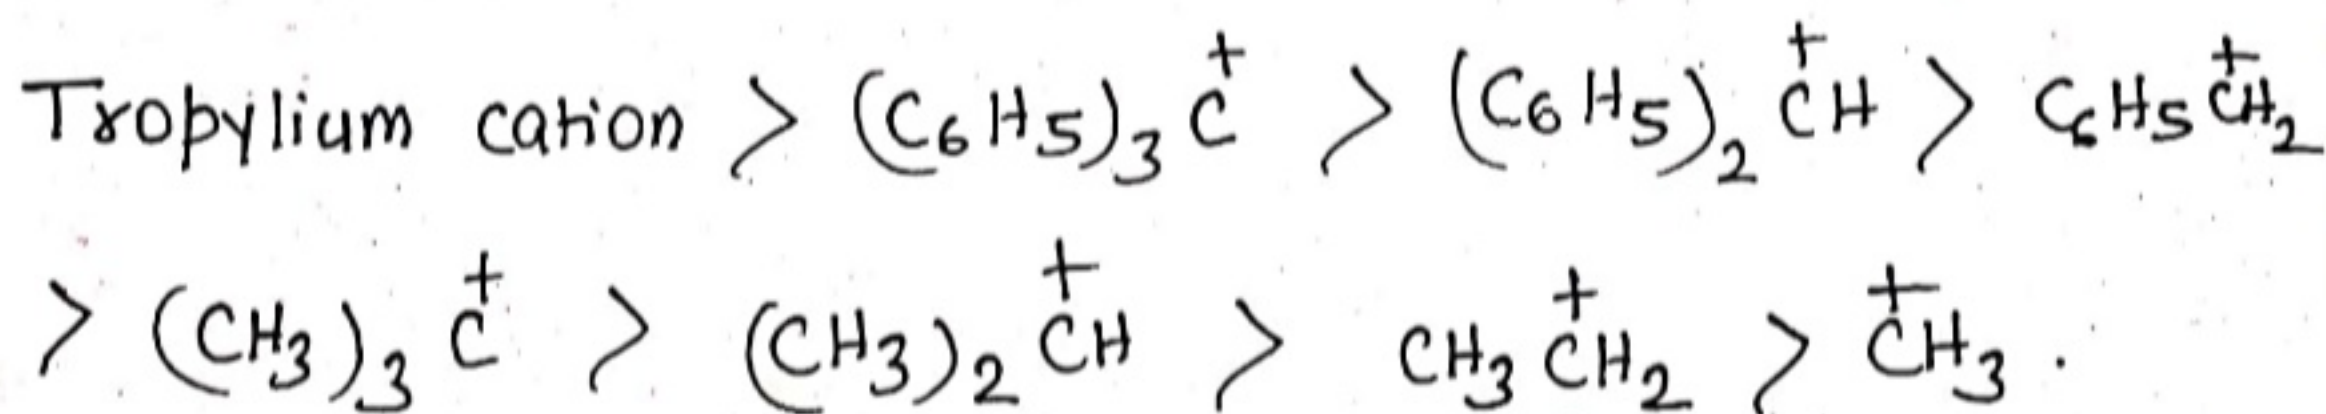 Tropylium cation > (C₆H₅)₃C⁺ > (C₆H₅)₂C⁺H > C₆H₅C⁺H₂
> (CH₃)₃C⁺ > (CH₃)₂C⁺H > CH₃C⁺H₂ > C⁺H₃.